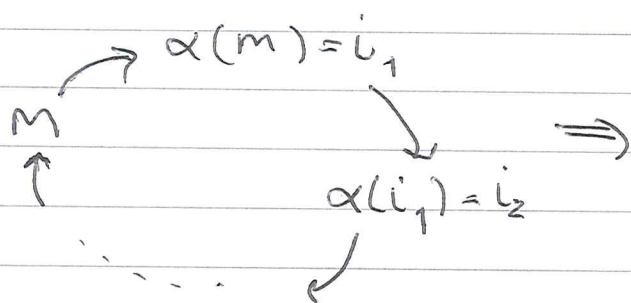 α(m) = i₁
m ⟹
α(i₁) = i₂